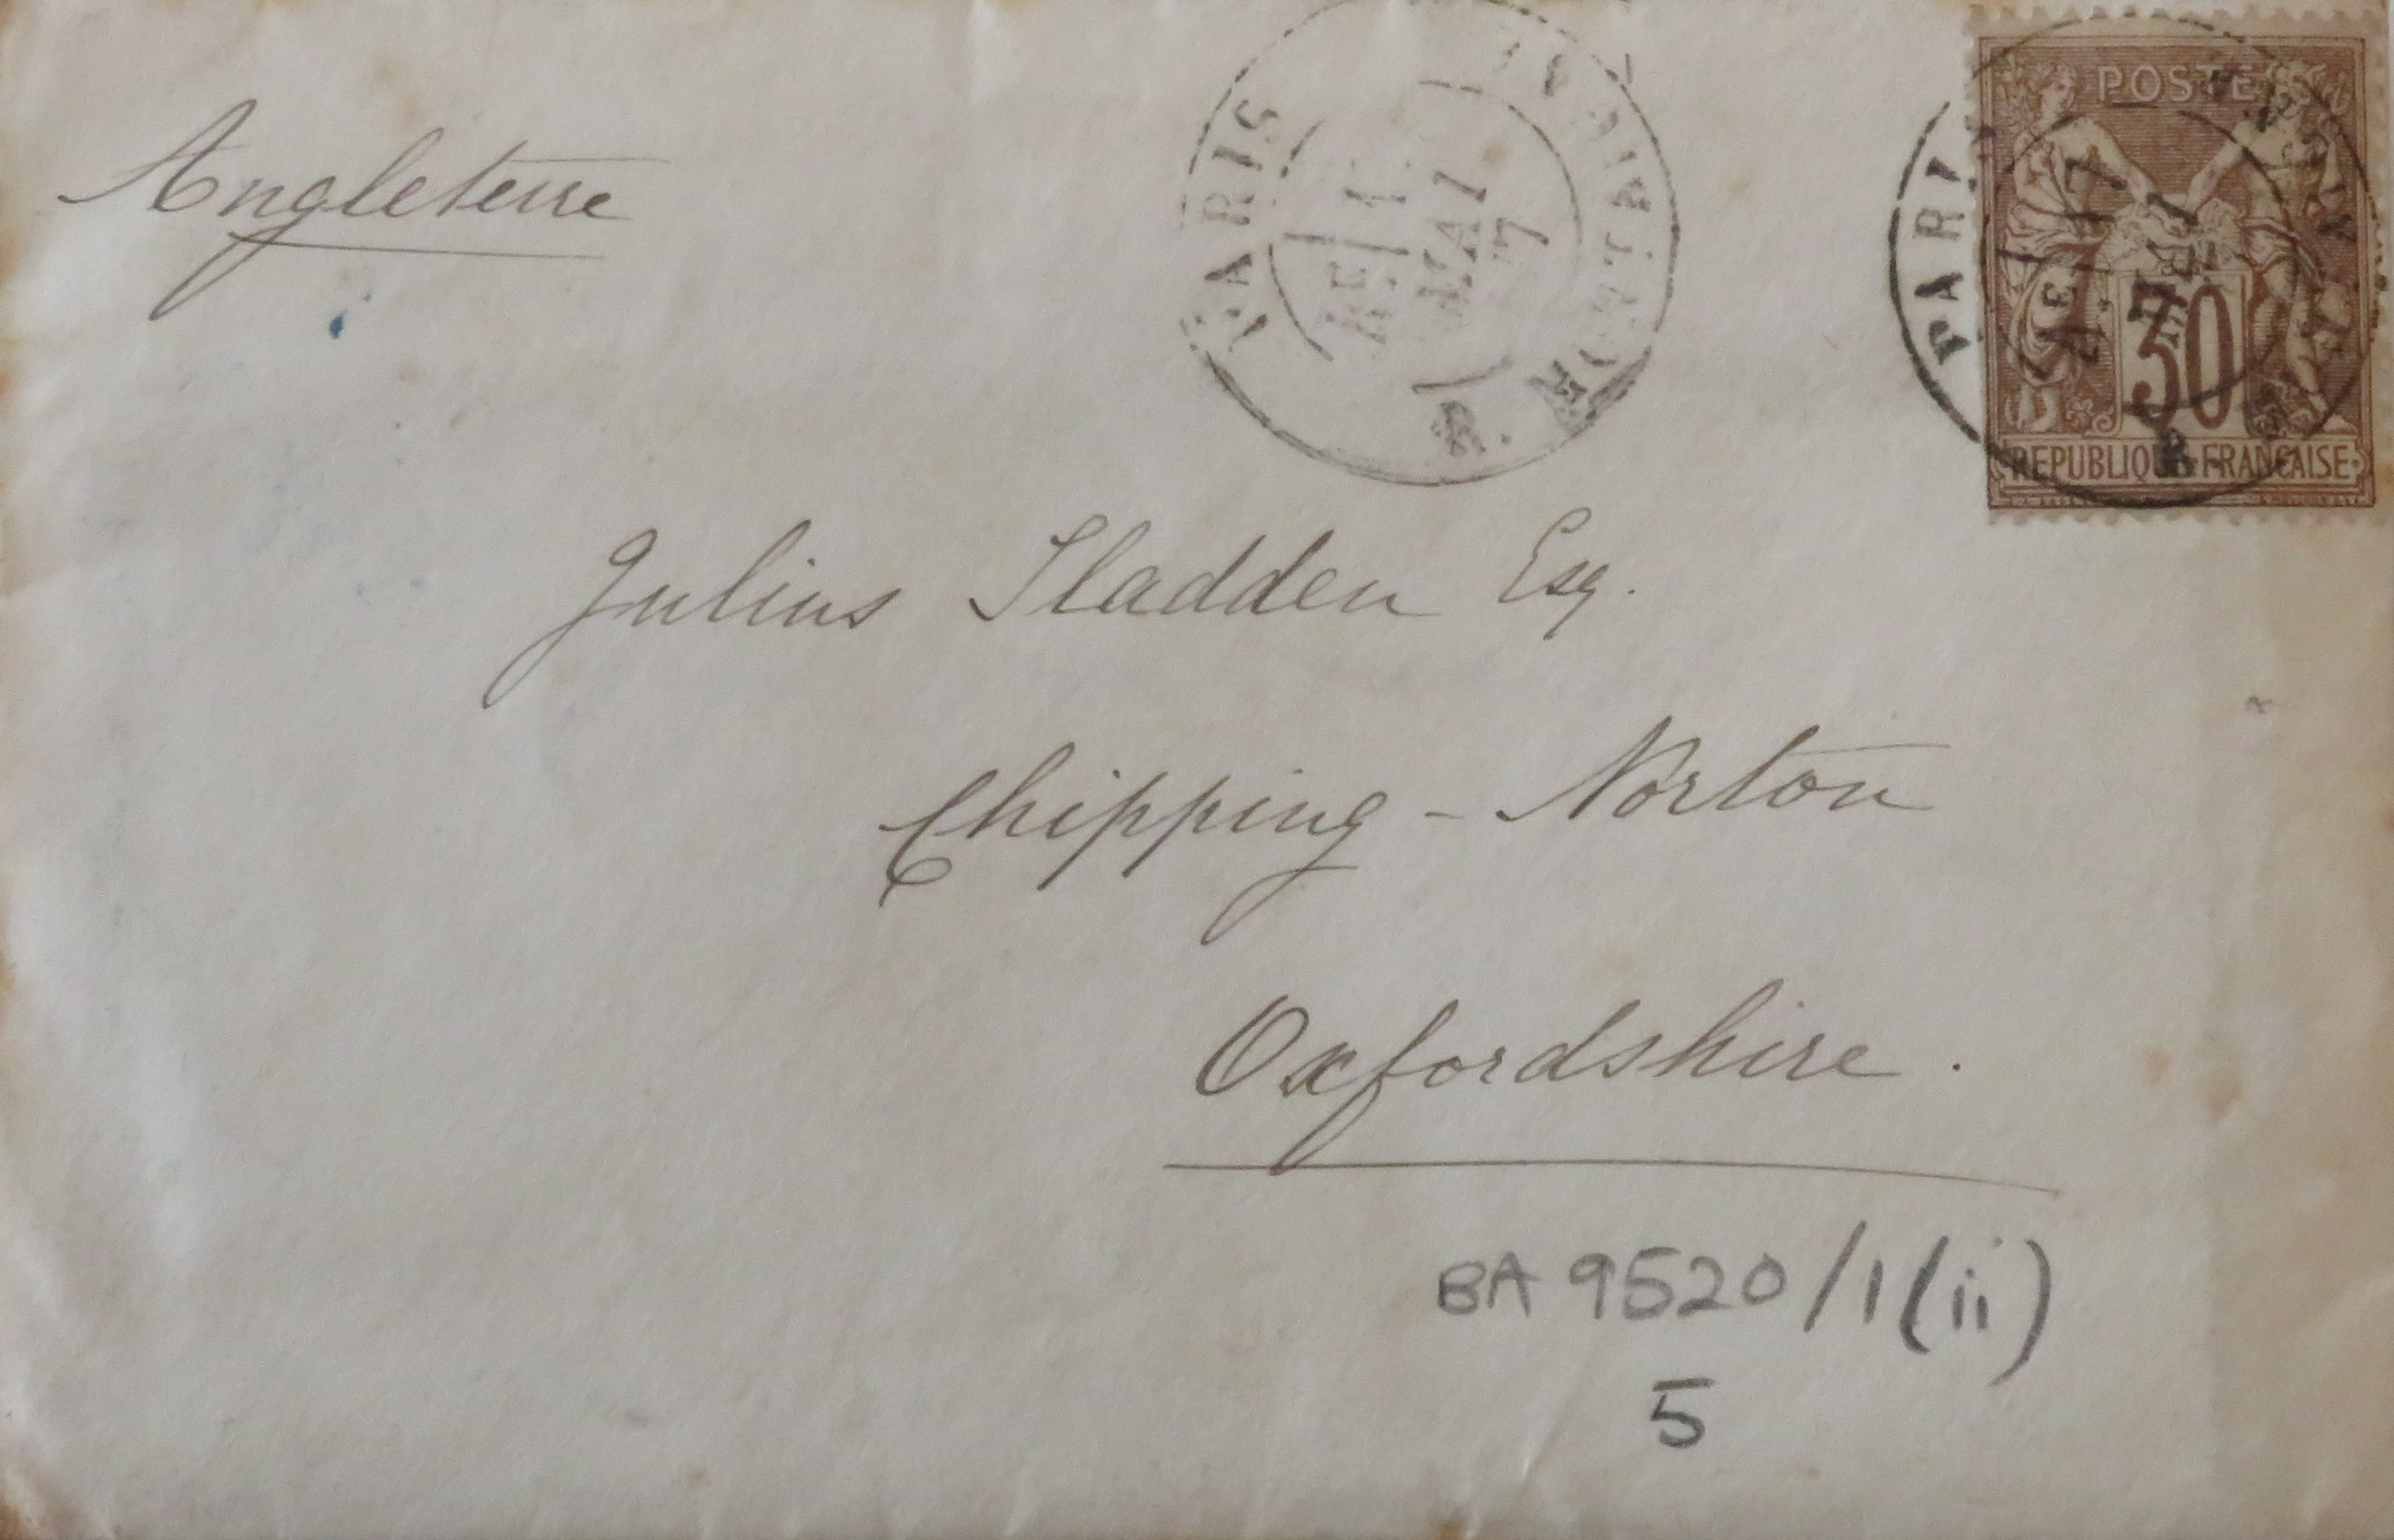 Angleterre
PARIS
MAI
POSTE
30
REPUBLIQUE FRANCAISE
PARIS
Julius Sladden Esq.
Chipping - Norton
Oxfordshire.
BA 9520/1(ii)
5